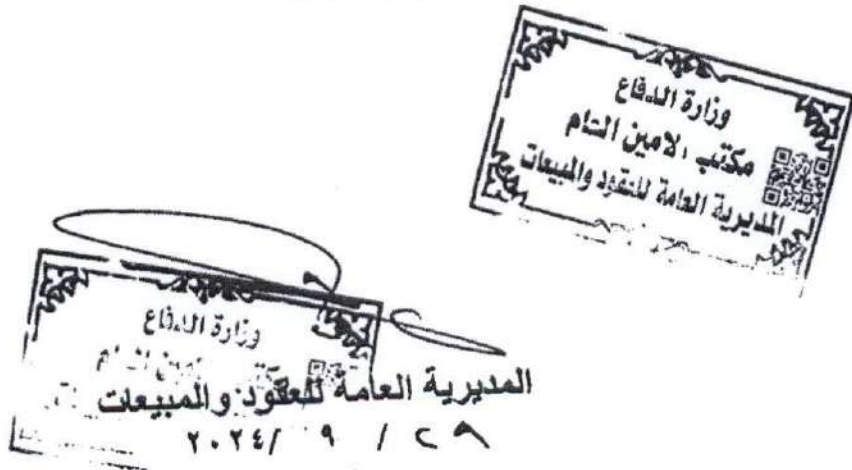 وزارة الدفاع
مكتب الامين العام
المديرية العامة للعقود والمبيعات
وزارة الدفاع
المديرية العامة للعقود والمبيعات
٢٩ / ٩ /٢٠٢٤